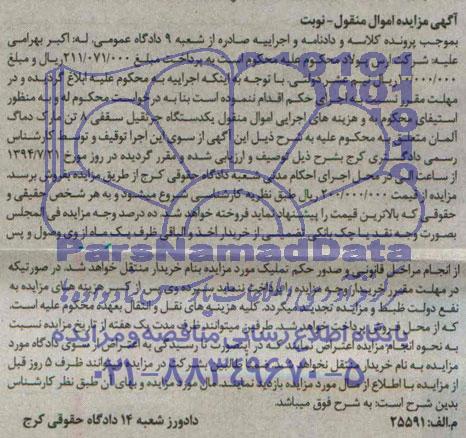 آگهی مزایده اموال منقول - نوبت
بموجب پرونده کلاسه و دادنامه و اجراییه صادره از شعبه ۹ دادگاه عمومی. له: اکبر بهرامی
علیه: شرکت ارس فولاد محکوم علیه محکوم است به پرداخت مبلغ ۲۱۱/۰۷۱/۰۰۰ریال و مبلغ
دولتی. با توجه به اینکه اجراییه به محکوم علیه ابلاغ گردیده و در
مهلت مقرر نسبت به اجرای حکم اقدام ننموده است بنا به درخواست محکوم له و به منظور
استیفای محکوم به و هزینه های اجرایی اموال منقول یکدستگاه جرثقیل سقفی ۸ تن مارک دماگ
آلمان متعلق به محکوم علیه به شرح ذیل این آگهی از سوی این اجرا توقیف و توسط کارشناس
رسمی دادگستری کرج بشرح ذیل توصیف و ارزیابی شده و مقرر گردیده در روز مورخ ۱۳۹۴/۷/۲۱
از ساعت الی در محل اجرای احکام مدنی شعبه دادگاه حقوقی کرج از طریق مزایده بفروش برسد.
مزایده از قیمت ریال طبق نظریه کارشناسی شروع میشود و به هر شخص حقیقی و
حقوقی که بالاترین قیمت را پیشنهاد نماید فروخته خواهد شد. ده درصد وجه مزایده فی المجلس
بصورت وجه نقد یا چک بانکی تضمینی از خریدار اخذ و الباقی ظرف یک ماه از وی وصول و پس
از انجام مراحل قانونی و صدور حکم تملیک مورد مزایده بنام خریدار منتقل خواهد شد. در صورتیکه
در مهلت مقرر خریدار وجه مزایده را پرداخت ننماید سپرده وی پس از کسر هزینه های مزایده به
نفع دولت ضبط و مزایده تجدید میگردد. کلیه هزینه های نقل و انتقال بعهده محکوم علیه است.
که از محل فروش پرداخت خواهد شد. طرفین میتوانند ظرف مدت یک هفته از تاریخ مزایده نسبت
به نحوه انجام مزایده اعتراض نمایند. در اینصورت تا رسیدگی به اعتراض در دادگاه مورد
مزایده به نام خریدار منتقل نخواهد شد. ضمنا طالبین شرکت در مزایده میتوانند ظرف ۵ روز قبل
از مزایده با اطلاع از محل مورد مزایده بازدید نمایند. مال مورد مزایده و بهای آن طبق نظر کارشناس
بدین شرح است: به شرح فوق میباشد.
م.الف: ۲۵۵۹۱ دادورز شعبه ۱۴ دادگاه حقوقی کرج
ParsNamadData
پایگاه اطلاع رسانی مناقصه و مزایده
۰۲۱-۸۸۳۴۹۶۷۰-۵